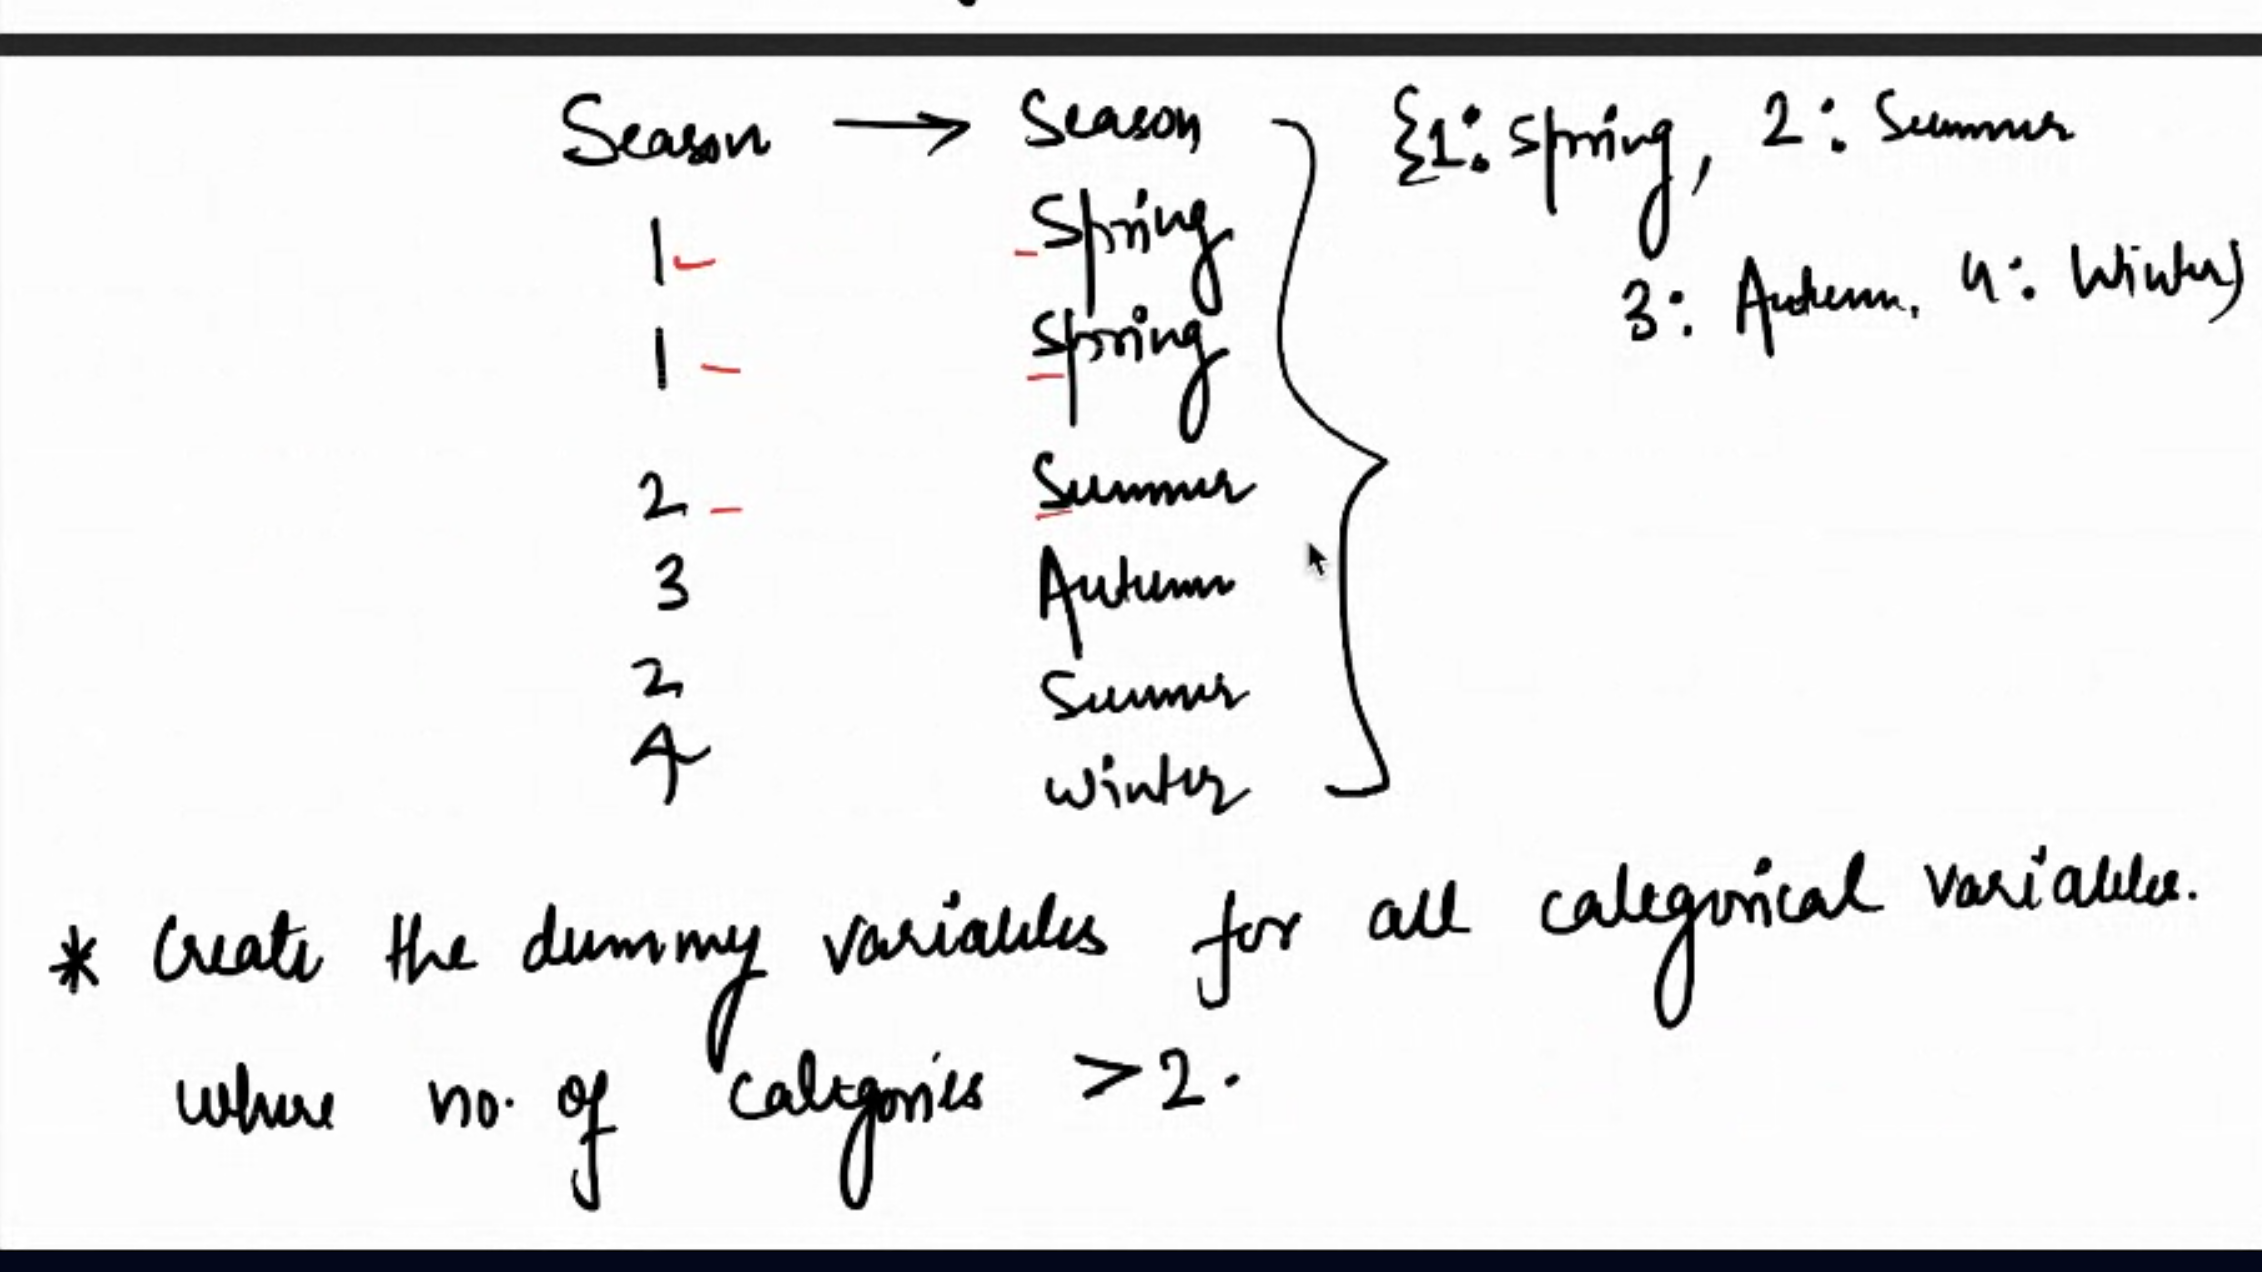 Season → Season {1: Spring, 2: Summer
3: Autumn, 4: Winter)
1 Spring
1 Spring
2 Summer
3 Autumn
2 Summer
4 Winter
* Create the dummy variables for all categorical variables.
where no. of categories > 2.